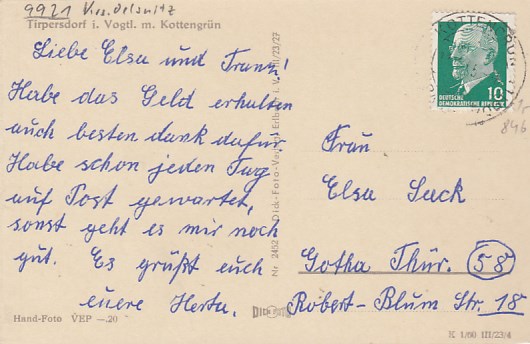 9921 Krs. Oelsnitz
Tirpersdorf i. Vogtl. m. Kottengrün
Liebe Elsa und Franz!
Habe das Geld erhalten
auch besten dank dafür.
Habe schon jeden Tag
auf Post gewartet,
sonst geht es mir noch
gut. Es grüßt euch
euere Herta.
Hand-Foto VEP -.20
Nr 2452 Dick-Foto-Verlag Erlbach i. V. III/23/27
DICK FOTO
10
DEUTSCHE
DEMOKRATISCHE REPUBLIK
KOTTENGRÜN
846
Frau
Elsa Sack
Gotha Thür. 58
Robert-Blum Str. 18
K 1/60 III/23/4